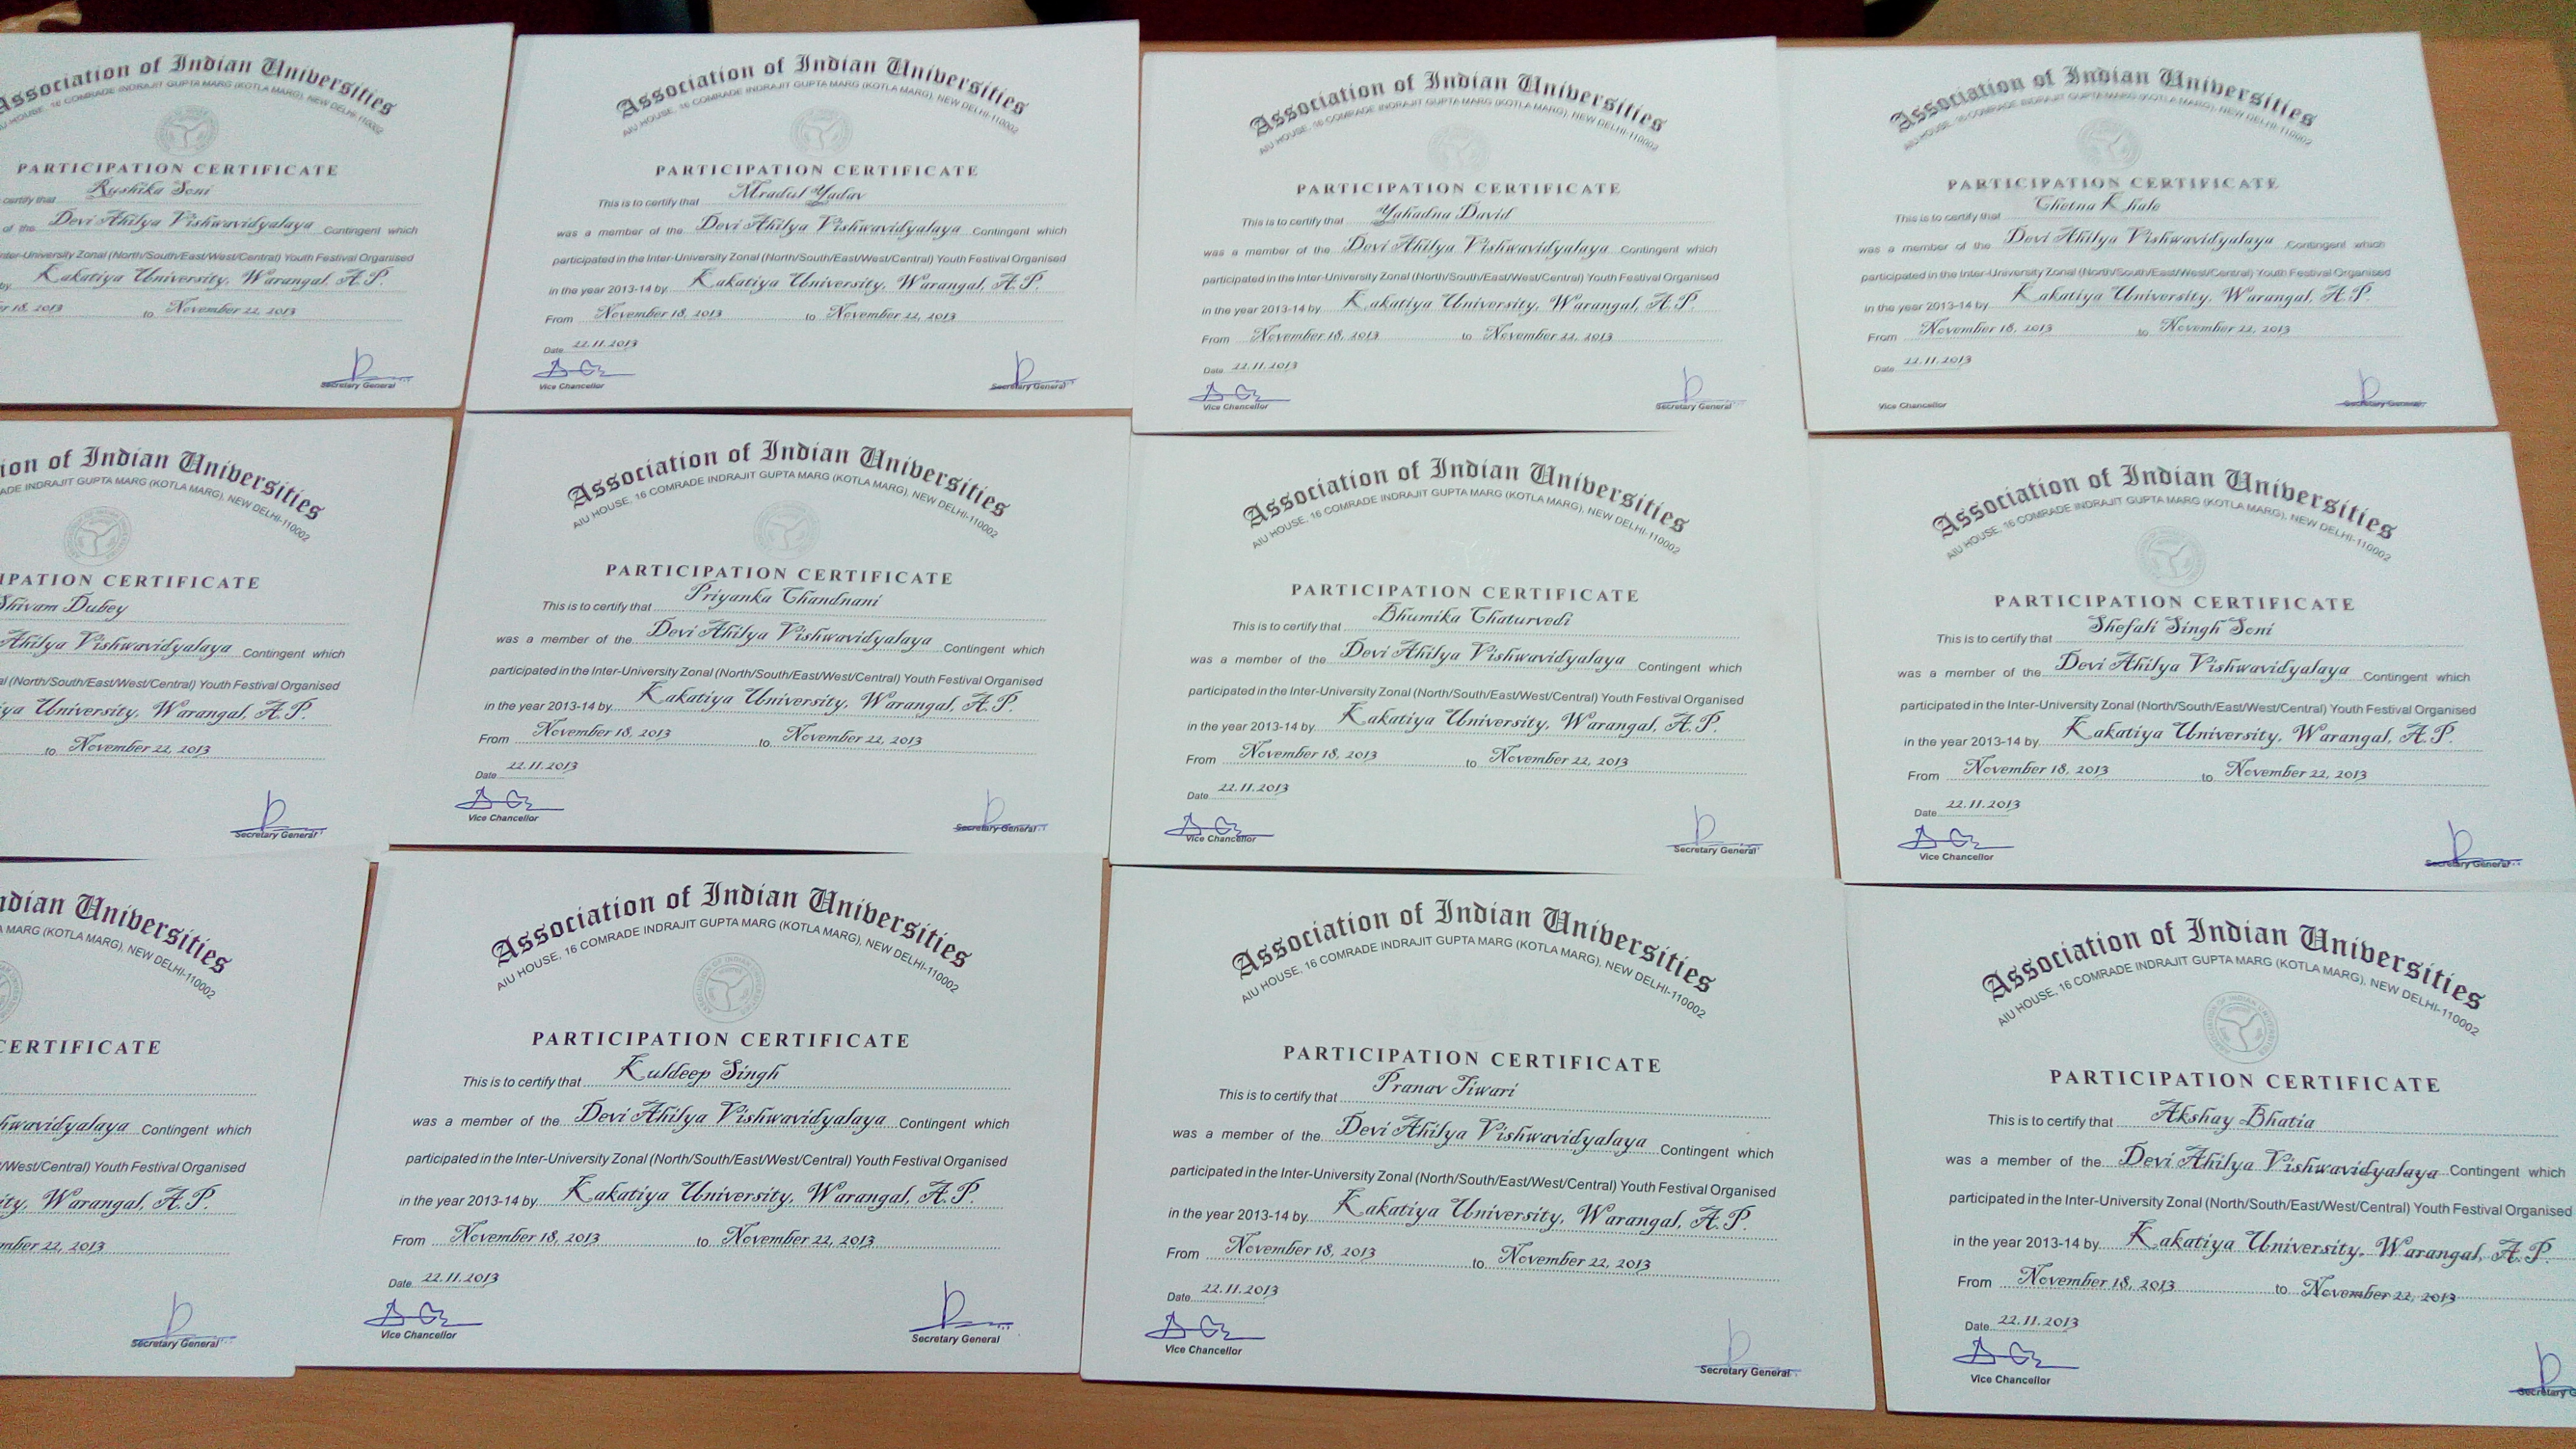 Association of Indian Universities
AIU HOUSE, 16 COMRADE INDRAJIT GUPTA MARG (KOTLA MARG), NEW DELHI-110002
PARTICIPATION CERTIFICATE
certify that Rushika Soni
of the Devi Ahilya Vishwavidyalaya Contingent which
Inter-University Zonal (North/South/East/West/Central) Youth Festival Organised
by Kakatiya University, Warangal, A.P.
18, 2013 to November 22, 2013
Secretary General
Association of Indian Universities
AIU HOUSE, 16 COMRADE INDRAJIT GUPTA MARG (KOTLA MARG), NEW DELHI-110002
PARTICIPATION CERTIFICATE
This is to certify that Mradul Yadav
was a member of the Devi Ahilya Vishwavidyalaya Contingent which
participated in the Inter-University Zonal (North/South/East/West/Central) Youth Festival Organised
in the year 2013-14 by Kakatiya University, Warangal, A.P.
From November 18, 2013 to November 22, 2013
Date 22.11.2013
Vice Chancellor Secretary General
Association of Indian Universities
AIU HOUSE, 16 COMRADE INDRAJIT GUPTA MARG (KOTLA MARG), NEW DELHI-110002
PARTICIPATION CERTIFICATE
This is to certify that Yahadna David
was a member of the Devi Ahilya Vishwavidyalaya Contingent which
participated in the Inter-University Zonal (North/South/East/West/Central) Youth Festival Organised
in the year 2013-14 by Kakatiya University, Warangal, A.P.
From November 18, 2013 to November 22, 2013
Date 22.11.2013
Vice Chancellor Secretary General
Association of Indian Universities
AIU HOUSE, 16 COMRADE INDRAJIT GUPTA MARG (KOTLA MARG), NEW DELHI-110002
PARTICIPATION CERTIFICATE
This is to certify that Chetna Khale
was a member of the Devi Ahilya Vishwavidyalaya Contingent which
participated in the Inter-University Zonal (North/South/East/West/Central) Youth Festival Organised
in the year 2013-14 by Kakatiya University, Warangal, A.P.
From November 18, 2013 to November 22, 2013
Date 22.11.2013
Vice Chancellor Secretary General
of Indian Universities
INDRAJIT GUPTA MARG (KOTLA MARG), NEW DELHI-110002
CERTIFICATE
Shivam Dubey
Ahilya Vishwavidyalaya Contingent which
(North/South/East/West/Central) Youth Festival Organised
University, Warangal, A.P.
to November 22, 2013
Secretary General
Association of Indian Universities
AIU HOUSE, 16 COMRADE INDRAJIT GUPTA MARG (KOTLA MARG), NEW DELHI-110002
PARTICIPATION CERTIFICATE
This is to certify that Priyanka Chandnani
was a member of the Devi Ahilya Vishwavidyalaya Contingent which
participated in the Inter-University Zonal (North/South/East/West/Central) Youth Festival Organised
in the year 2013-14 by Kakatiya University, Warangal, A.P.
From November 18, 2013 to November 22, 2013
Date 22.11.2013
Vice Chancellor Secretary General
Association of Indian Universities
AIU HOUSE, 16 COMRADE INDRAJIT GUPTA MARG (KOTLA MARG), NEW DELHI-110002
PARTICIPATION CERTIFICATE
This is to certify that Bhumika Chaturvedi
was a member of the Devi Ahilya Vishwavidyalaya Contingent which
participated in the Inter-University Zonal (North/South/East/West/Central) Youth Festival Organised
in the year 2013-14 by Kakatiya University, Warangal, A.P.
From November 18, 2013 to November 22, 2013
Date 22.11.2013
Vice Chancellor Secretary General
Association of Indian Universities
AIU HOUSE, 16 COMRADE INDRAJIT GUPTA MARG (KOTLA MARG), NEW DELHI-110002
PARTICIPATION CERTIFICATE
This is to certify that Shefali Singh Soni
was a member of the Devi Ahilya Vishwavidyalaya Contingent which
participated in the Inter-University Zonal (North/South/East/West/Central) Youth Festival Organised
in the year 2013-14 by Kakatiya University, Warangal, A.P.
From November 18, 2013 to November 22, 2013
Date 22.11.2013
Vice Chancellor Secretary General
Universities
MARG (KOTLA MARG), NEW DELHI-110002
CERTIFICATE
Contingent which
/West/Central) Youth Festival Organised
Warangal, A.P.
22, 2013
Secretary General
Association of Indian Universities
AIU HOUSE, 16 COMRADE INDRAJIT GUPTA MARG (KOTLA MARG), NEW DELHI-110002
PARTICIPATION CERTIFICATE
This is to certify that Kuldeep Singh
was a member of the Devi Ahilya Vishwavidyalaya Contingent which
participated in the Inter-University Zonal (North/South/East/West/Central) Youth Festival Organised
in the year 2013-14 by Kakatiya University, Warangal, A.P.
From November 18, 2013 to November 22, 2013
Date 22.11.2013
Vice Chancellor Secretary General
Association of Indian Universities
AIU HOUSE, 16 COMRADE INDRAJIT GUPTA MARG (KOTLA MARG), NEW DELHI-110002
PARTICIPATION CERTIFICATE
This is to certify that Pranav Tiwari
was a member of the Devi Ahilya Vishwavidyalaya Contingent which
participated in the Inter-University Zonal (North/South/East/West/Central) Youth Festival Organised
in the year 2013-14 by Kakatiya University, Warangal, A.P.
From November 18, 2013 to November 22, 2013
Date 22.11.2013
Vice Chancellor Secretary General
Association of Indian Universities
AIU HOUSE, 16 COMRADE INDRAJIT GUPTA MARG (KOTLA MARG), NEW DELHI-110002
PARTICIPATION CERTIFICATE
This is to certify that Akshay Bhatia
was a member of the Devi Ahilya Vishwavidyalaya Contingent which
participated in the Inter-University Zonal (North/South/East/West/Central) Youth Festival Organised
in the year 2013-14 by Kakatiya University, Warangal, A.P.
From November 18, 2013 to November 22, 2013
Date 22.11.2013
Vice Chancellor Secretary